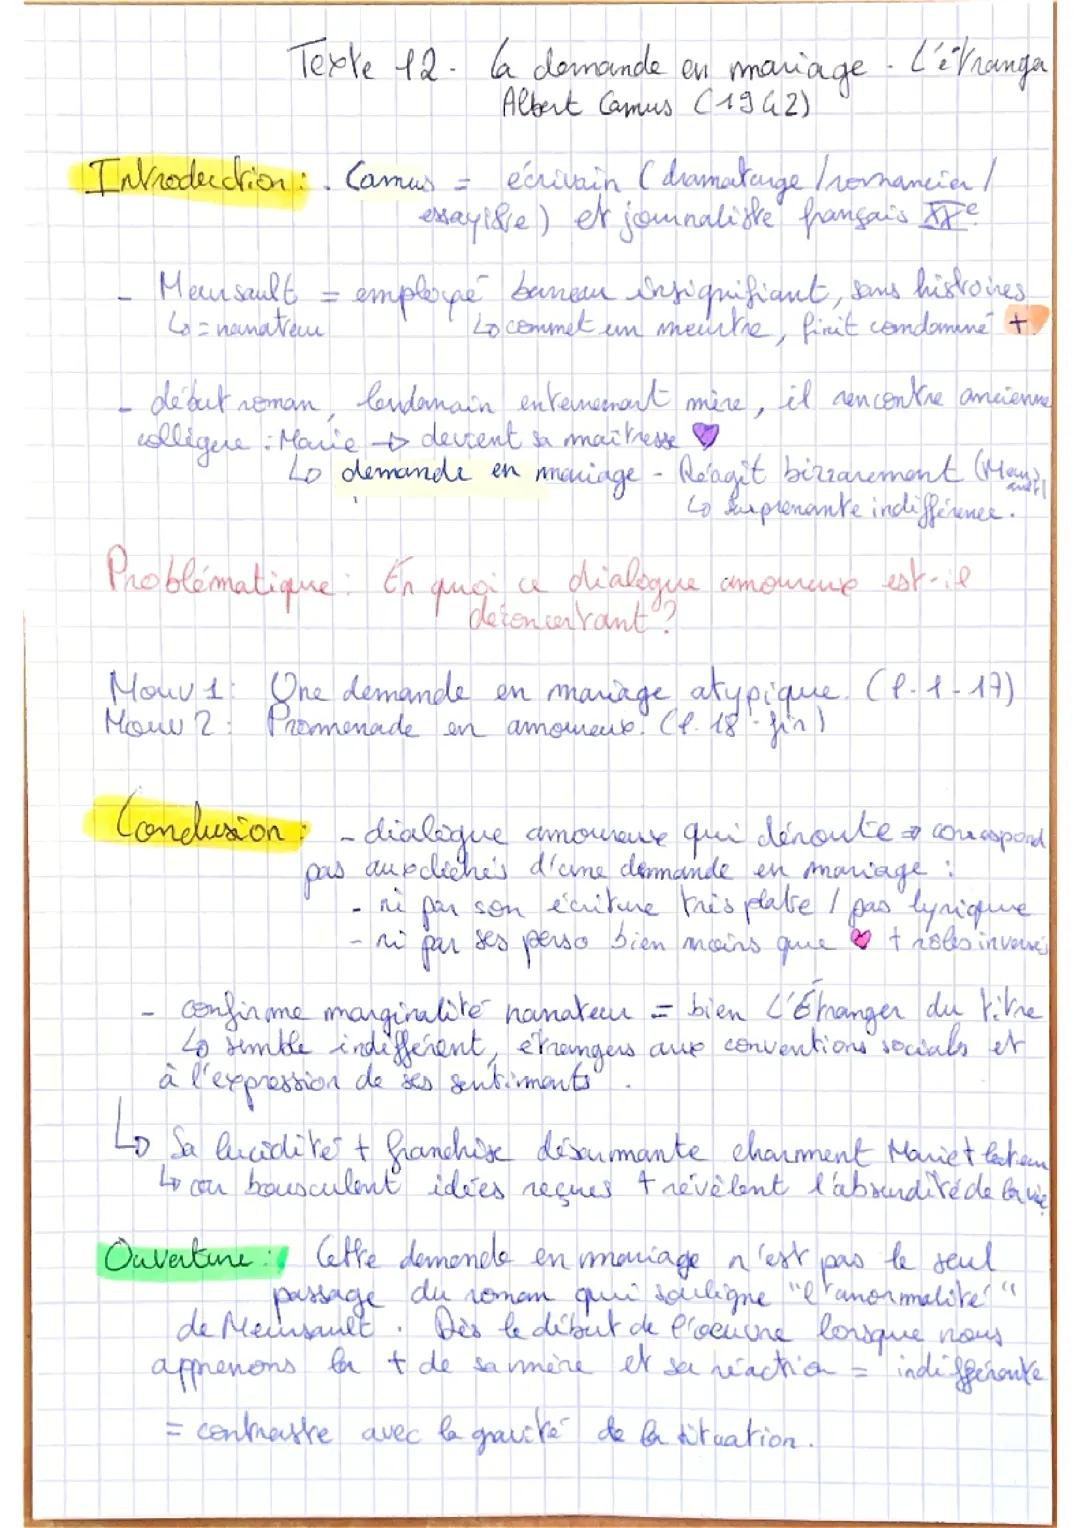 Texte 12 - La demande en mariage - L'étranger
Albert Camus (1942)
Introduction : . Camus = écrivain (dramaturge / romancier /
essayiste) et journaliste français XXe
- Meursault = employé bureau insignifiant, sans histoires
↳ = narrateur ↳ commet un meurtre, finit condamné +
- début roman, lendemain enterrement mère, il rencontre ancienne
collègue : Marie → devient sa maîtresse ♥
↳ demande en mariage - Réagit bizzarement (Meursault)
↳ surprenante indifférence.
Problématique : En quoi ce dialogue amoureux est-il
déconcertant ?
Mouv 1 : Une demande en mariage atypique. (l. 1 - 17)
Mouv 2 : Promenade en amoureux. (l. 18 - fin)
Conclusion : - dialogue amoureux qui déroute → correspond
pas aux clichés d'une demande en mariage :
- ni par son écriture très plate / pas lyrique
- ni par ses perso bien moins que ♥ + roles inversés
- confirme marginalité narrateur = bien L'Étranger du titre
↳ semble indifférent, étrangers aux conventions socials et
à l'expression de ses sentiments.
↳ Sa lucidité + franchise désarmante charment Marie + lecteur
↳ car bousculent idées reçues + révèlent l'absurdité de la vie
Ouverture : Cette demande en mariage n'est pas le seul
passage du roman qui souligne "l'anormalité"
de Meursault. Dès le début de l'oeuvre lorsque nous
apprenons la + de sa mère et sa réaction = indifférente
= contraste avec la gravité de la situation.